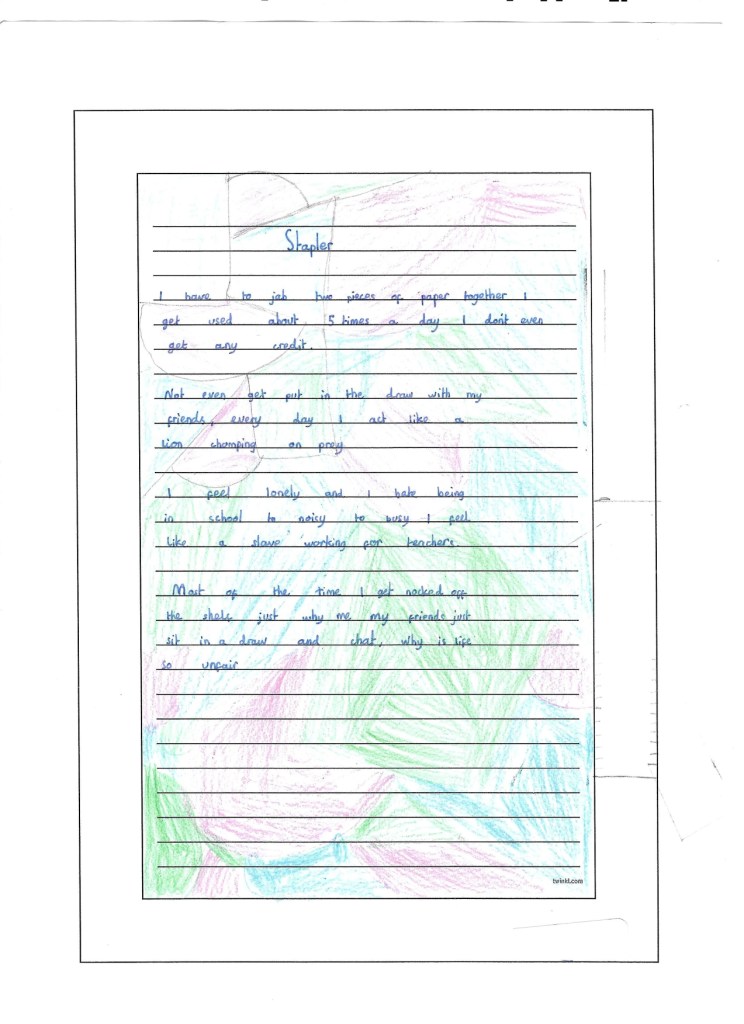 Stapler
I have to jab two pieces of paper together I
get used about 5 times a day I don't even
get any credit.
Not even get put in the draw with my
friends, every day I act like a
lion chomping on prey
I feel lonely and I hate being
in school to noisy to busy I feel
like a slave working for teachers.
Most of the time I get nocked off
the shelf just why me my friends just
sit in a draw and chat, why is life
so unfair
twinkl.com